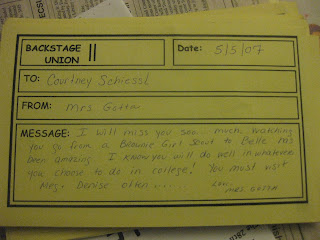 BACKSTAGE UNION || Date: 5/5/07
TO: Courtney Schiessl
FROM: Mrs. Gotta
MESSAGE: I will miss you soo... much. Watching
you go from a Brownie Girl Scout to Belle has
been amazing. I know you will do well in whatever
you choose to do in college! You must visit
Mrs. Denise often......
Love,
Mrs. Gotta